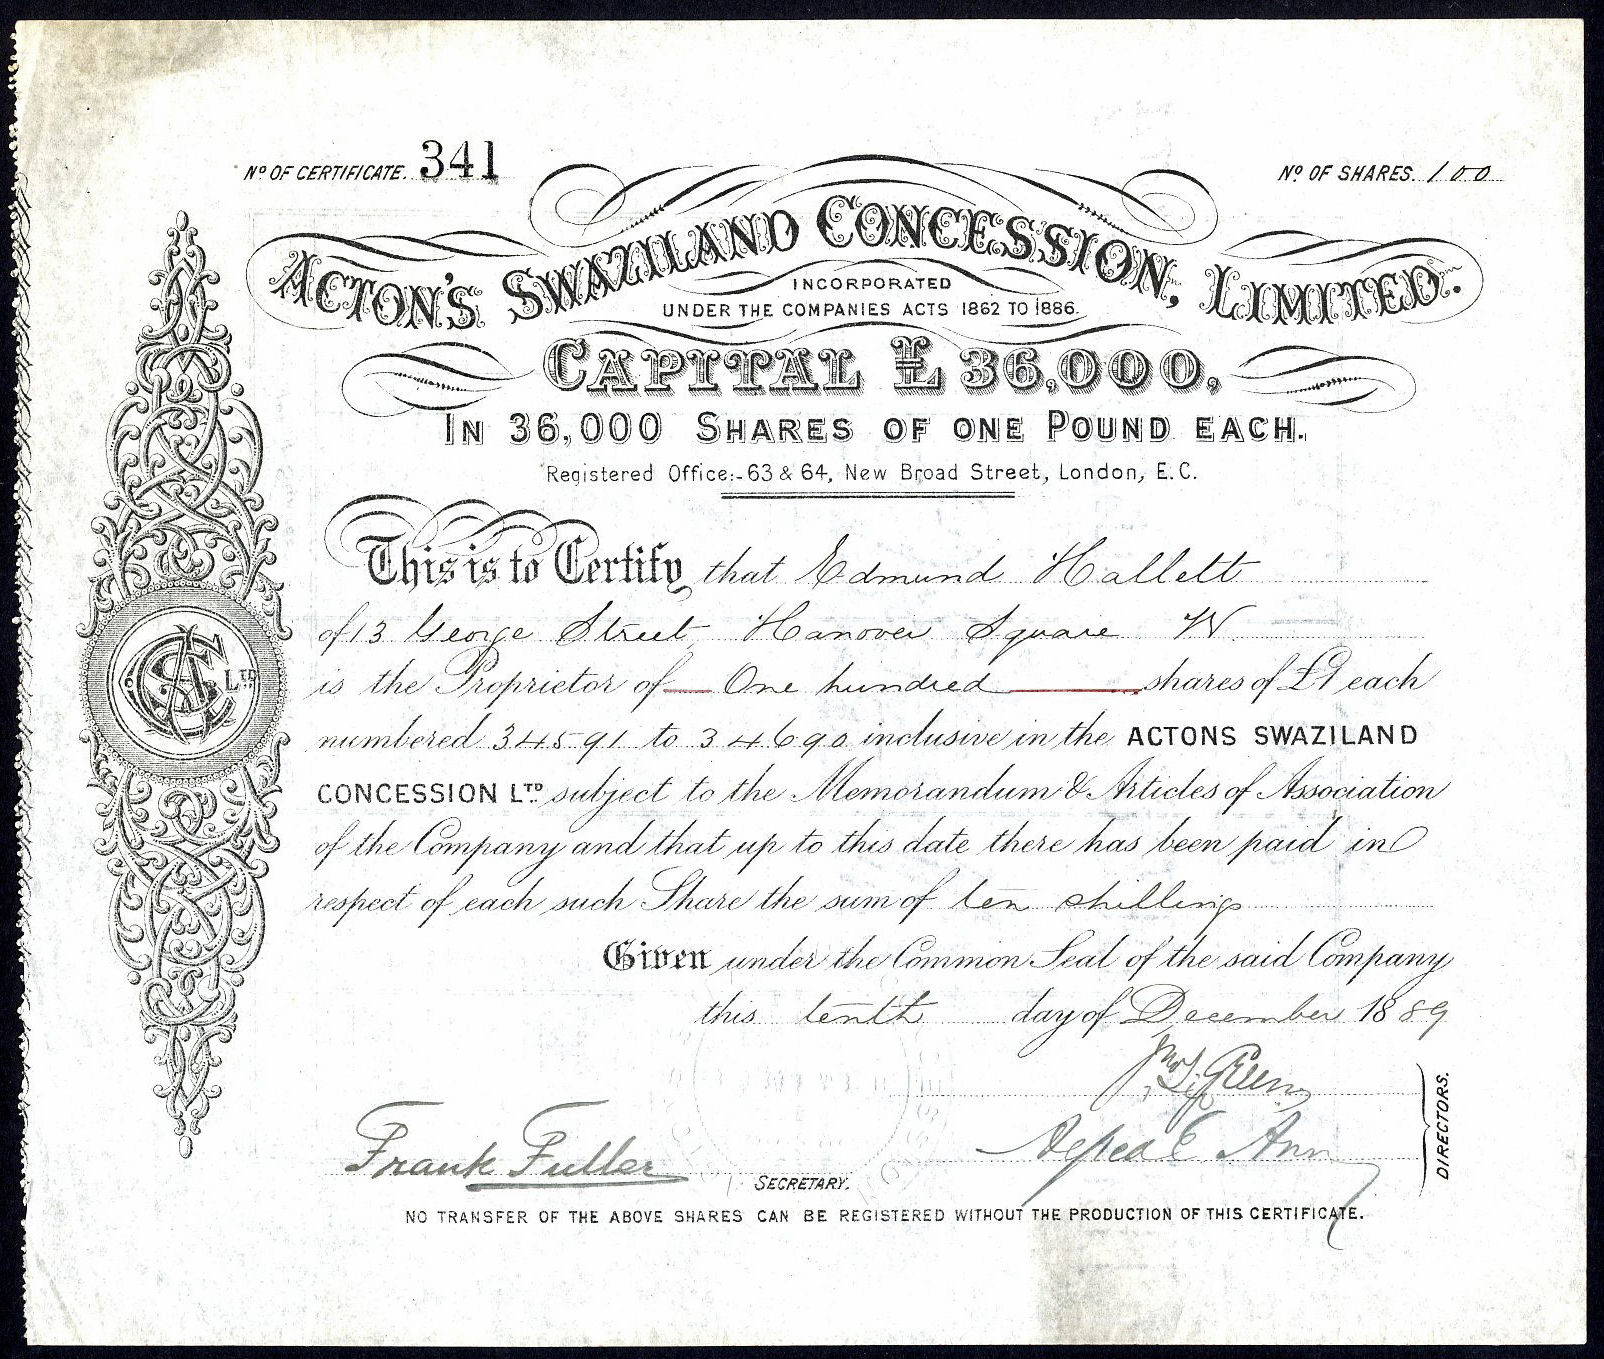 Nº OF CERTIFICATE. 341
Nº OF SHARES. 100
ACTON'S SWAZILAND CONCESSION, LIMITED.
INCORPORATED
UNDER THE COMPANIES ACTS 1862 TO 1886.
CAPITAL £36,000,
IN 36,000 SHARES OF ONE POUND EACH.
Registered Office:- 63 & 64, New Broad Street, London, E.C.
This is to Certify that Edmund Hallett
of 13 George Street Hanover Square W.
is the Proprietor of One hundred shares of £1 each
numbered 34591 to 34690 inclusive in the ACTONS SWAZILAND
CONCESSION LTD subject to the Memorandum & Articles of Association
of the Company and that up to this date there has been paid in
respect of each such Share the sum of ten shillings
Given under the Common Seal of the said Company
this tenth day of December 1889
Frank Fuller
SECRETARY.
DIRECTORS.
NO TRANSFER OF THE ABOVE SHARES CAN BE REGISTERED WITHOUT THE PRODUCTION OF THIS CERTIFICATE.
LTD